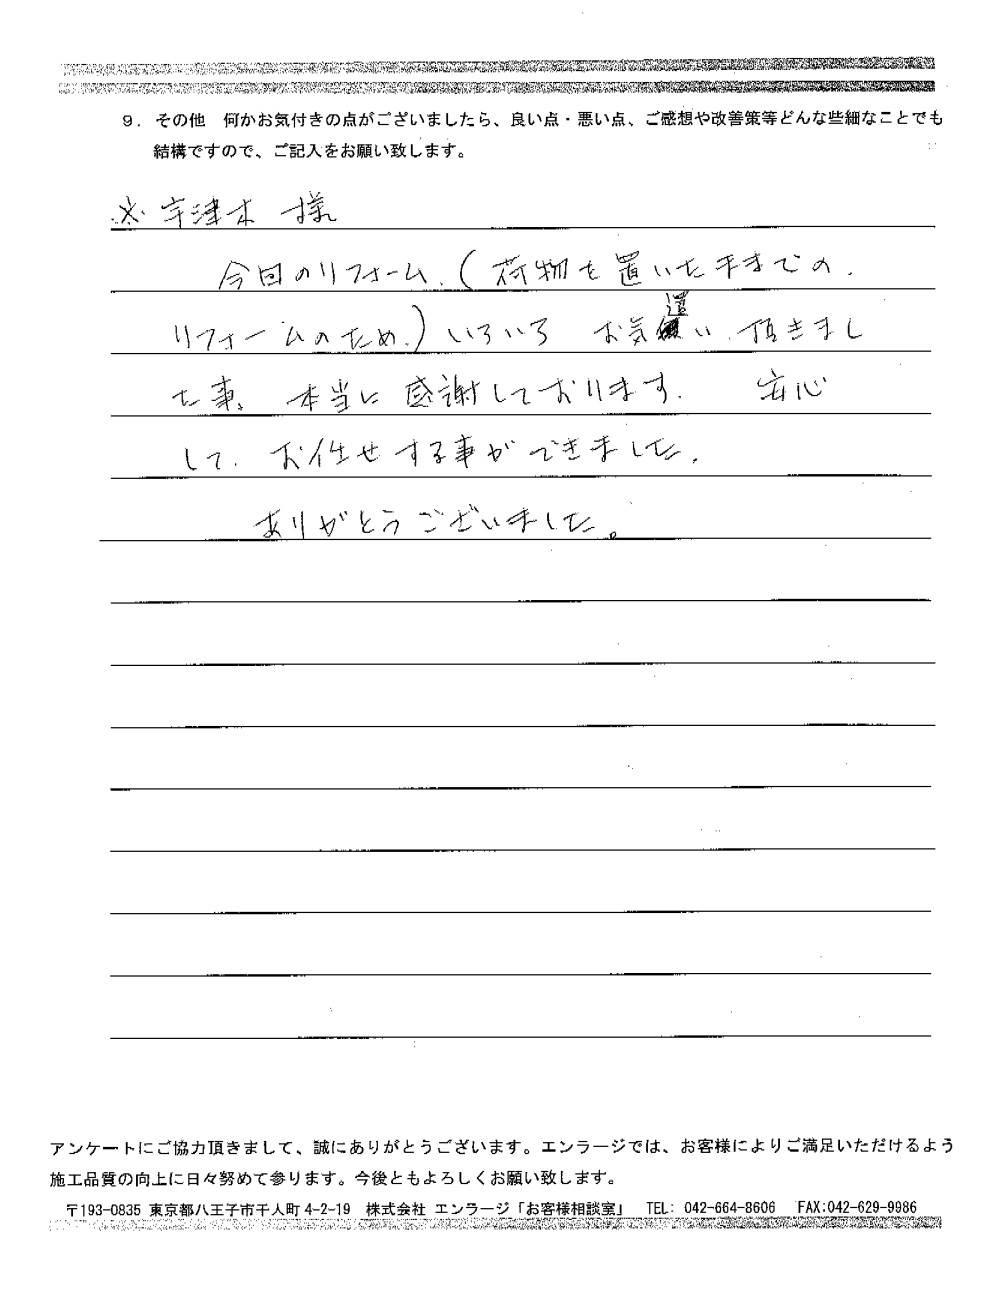 9. その他 何かお気付きの点がございましたら、良い点・悪い点、ご感想や改善策等どんな些細なことでも
結構ですので、ご記入をお願い致します。
※宇津木 様
今回のリフォーム.(荷物を置いたままでの.
リフォームのため.)いろいろ お気遣い.頂きまし
た事、本当に感謝しております. 安心
して.お任せする事ができました.
ありがとうございました。
アンケートにご協力頂きまして、誠にありがとうございます。エンラージでは、お客様によりご満足いただけるよう
施工品質の向上に日々努めて参ります。今後ともよろしくお願い致します。
〒193-0835 東京都八王子市千人町4-2-19 株式会社 エンラージ「お客様相談室」 TEL: 042-664-8606 FAX:042-629-9986